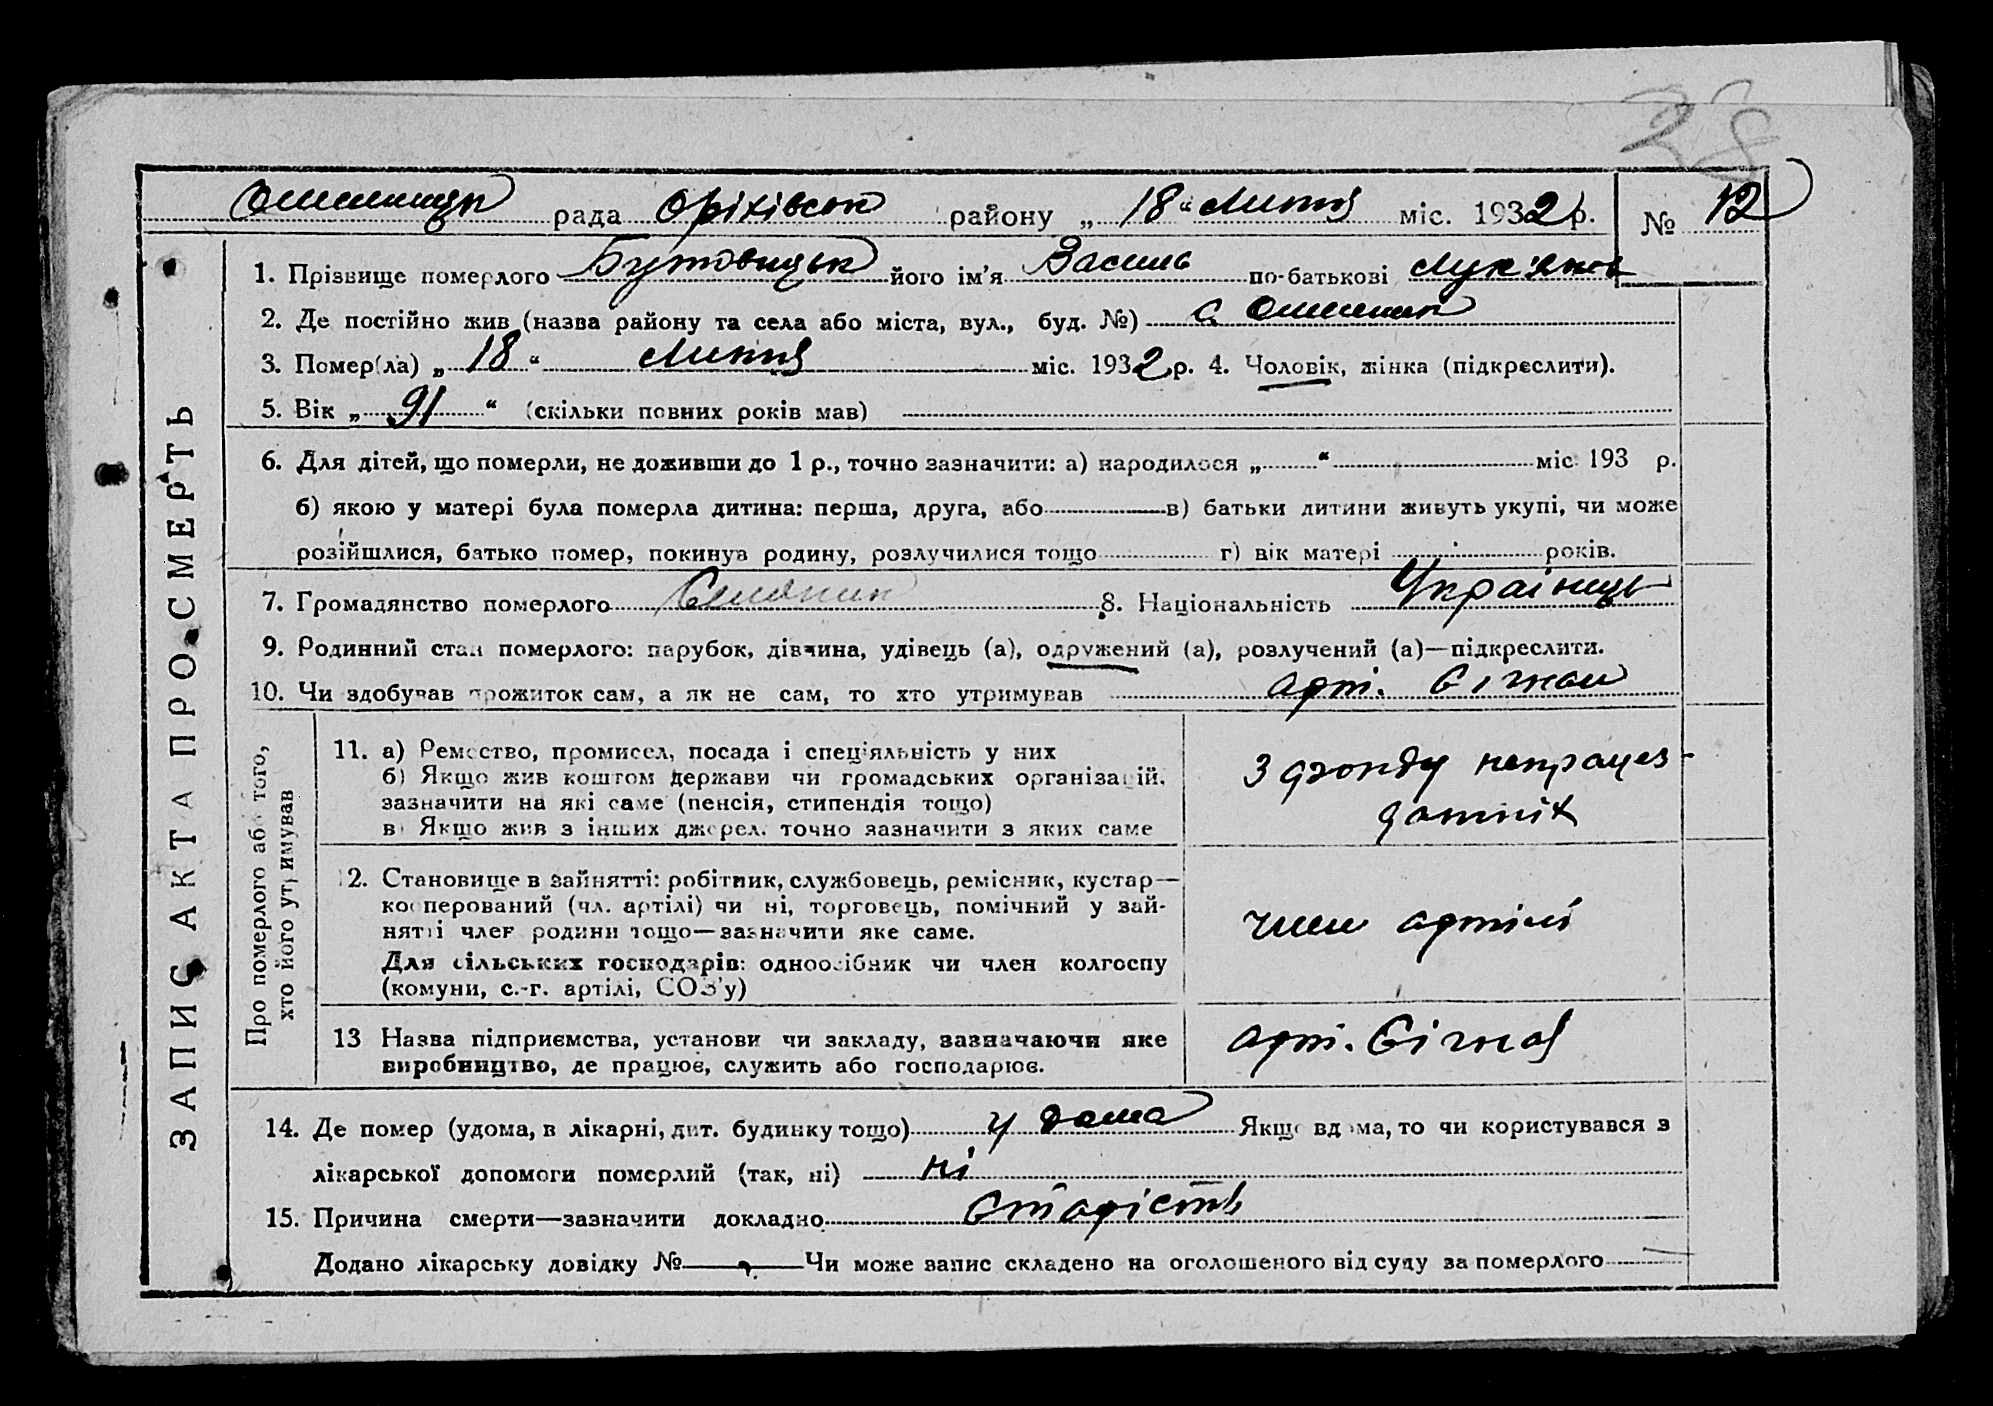 28
рада Оріхівськ району „ 18 “ Липня міс. 1932 р. № 12
1. Прізвище померлого Бутовицьк його ім’я Василь по-батькові Лук'янов
2. Де постійно жив (назва району та села або міста, вул., буд. №) с.
3. Помер(ла) „ 18 “ Липня міс. 1932 р. 4. Чоловік, жінка (підкреслити).
5. Вік „ 91 “ (скільки повних років мав)
6. Для дітей, що померли, не доживши до 1 р., точно зазначити: а) народилося „ “ міс. 193 р.
б) якою у матері була померла дитина: перша, друга, або в) батьки дитини живуть укупі, чи може
розійшлися, батько помер, покинув родину, розлучилися тощо г) вік матері років.
7. Громадянство померлого Селянин 8. Національність Українець
9. Родинний стан померлого: парубок, дівчина, удівець (а), одружений (а), розлучений (а)—підкреслити.
10. Чи здобував прожиток сам, а як не сам, то хто утримував арт.
ЗАПИС АКТА ПРО СМЕРТЬ
Про померлого або того,
хто його утримував
11. а) Ремество, промисел, посада і спеціяльність у них
б) Якщо жив коштом держави чи громадських організацій,
зазначити на які саме (пенсія, стипендія тощо)
в) Якщо жив з інших джерел, точно зазначити з яких саме
з фонду непрацез-
датніх
12. Становище в зайнятті: робітник, службовець, ремісник, кустар—
кооперований (чл. артілі) чи ні, торговець, помічний у зай-
нятті член родини тощо—зазначити яке саме.
Для сільських господарів: одноосібник чи член колгоспу
(комуни, с.-г. артілі, СОЗ’у)
член артілі
13 Назва підприємства, установи чи закладу, зазначаючи яке
виробництво, де працює, служить або господарює.
арт.
14. Де помер (удома, в лікарні, дит. будинку тощо) у дома Якщо вдома, то чи користувався з
лікарської допомоги померлий (так, ні) ні
15. Причина смерти—зазначити докладно старість
Додано лікарську довідку № Чи може запис складено на оголошеного від суду за померлого